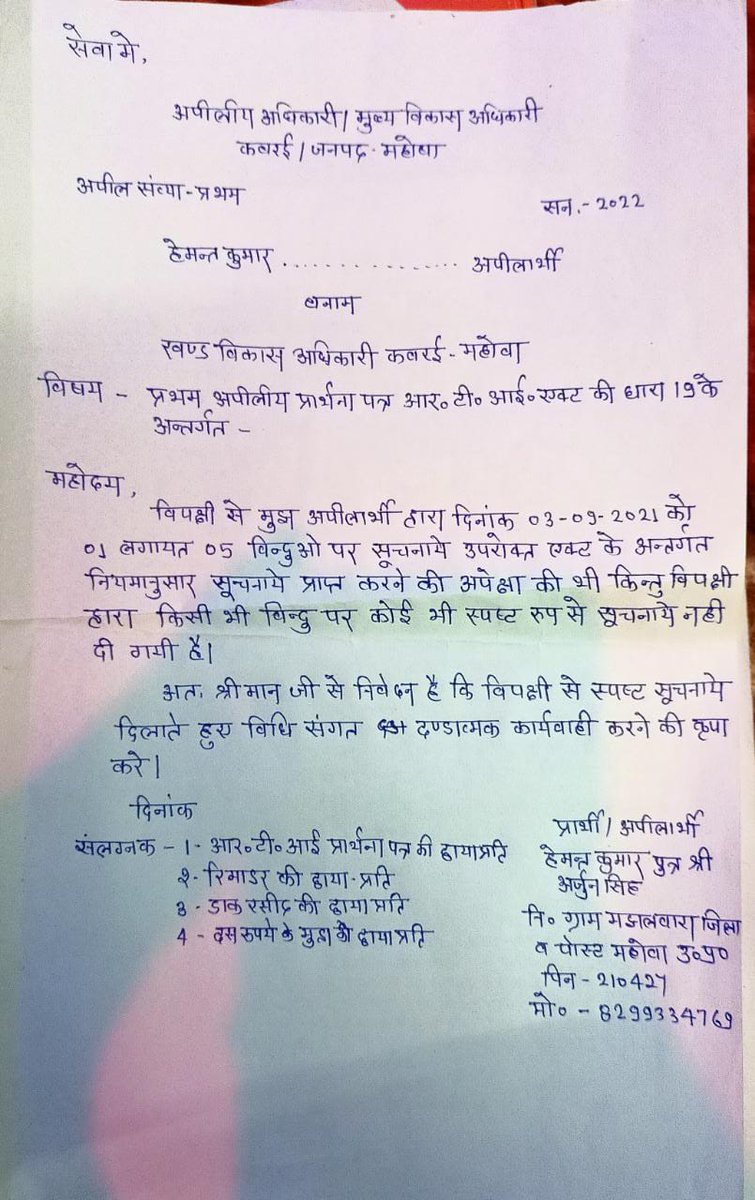 सेवा मे,
अपीलीय अधिकारी/ मुख्य विकास अधिकारी
कबरई/ जनपद - महोबा
अपील संख्या - प्रथम
सन.- 2022
हेमन्त कुमार ................... अपीलार्थी
बनाम
खण्ड विकास अधिकारी कबरई - महोबा
विषय - प्रथम अपीलीय प्रार्थना पत्र आर०टी०आई०एक्ट की धारा 19 के
अन्तर्गत -
महोदय,
विपक्षी से मुझ अपीलार्थी द्वारा दिनांक 03-09-2021 को
01 लगायत 05 विन्दुओ पर सूचनाये उपरोक्त एक्ट के अन्तर्गत
नियमानुसार सूचनाये प्राप्त करने की अपेक्षा की थी किन्तु विपक्षी
द्वारा किसी भी विन्दु पर कोई भी स्पष्ट रुप से सूचनाये नही
दी गयी है।
अतः श्रीमान जी से निवेदन है कि विपक्षी से स्पष्ट सूचनाये
दिलाते हुए विधि संगत दण्डात्मक कार्यवाही करने की कृपा
करे।
दिनांक
संलग्नक - 1- आर०टी०आई प्रार्थना पत्र की छायाप्रति
२- रिमाडर की छाया-प्रति
3 - डाक रसीद की छाया प्रति
4 - दस रुपये के मुद्रा की छायाप्रति
प्रार्थी/ अपीलार्थी
हेमन्त कुमार पुत्र श्री
अर्जुन सिंह
नि० ग्राम जिला
व पोस्ट महोवा उ०प्र०
पिन - 210427
मो० - 8299334769